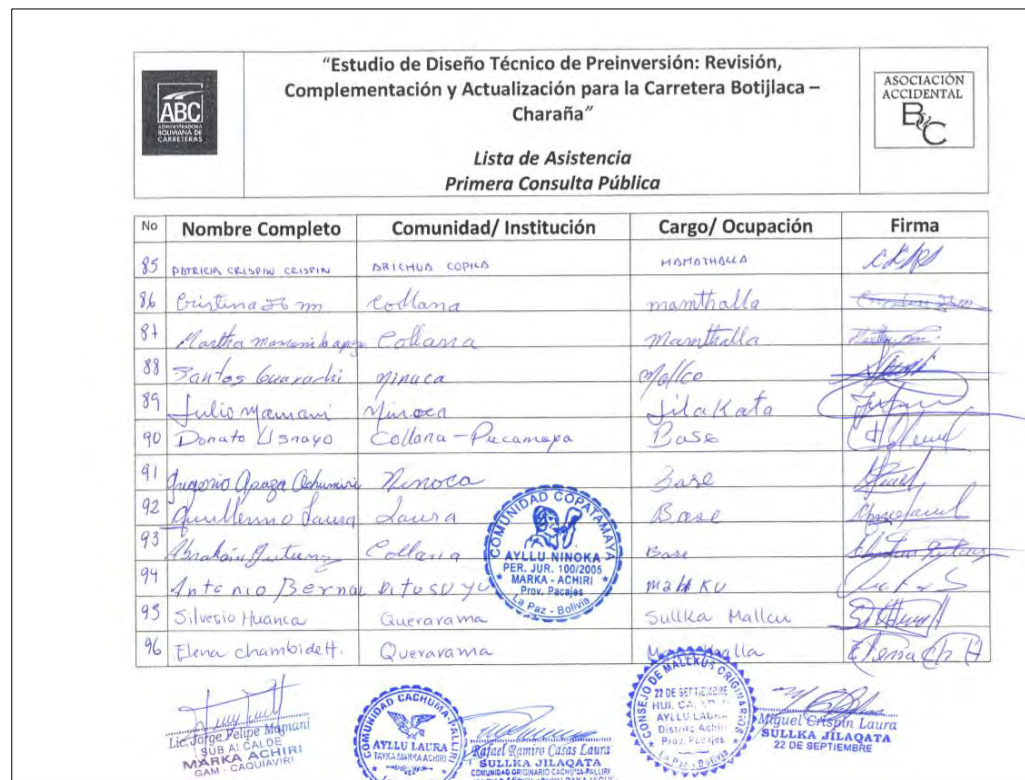 ABC
ADMINISTRADORA
BOLIVIANA DE
CARRETERAS
"Estudio de Diseño Técnico de Preinversión: Revisión,
Complementación y Actualización para la Carretera Botijlaca –
Charaña"
Lista de Asistencia
Primera Consulta Pública
ASOCIACIÓN
ACCIDENTAL
ByC
No Nombre Completo Comunidad/ Institución Cargo/ Ocupación Firma
85 PATRICIA CRISPIN CRISPIN ARICHUA COPILA MAMATHALLA
86 Cristina Collana mamthalla
87 Martha mamani de apaza Collana Mamthalla
88 Santos Guarachi Ninuca Mallco
89 Julio Mamani Ninoca JilaKata
90 Donato Usnayo Collana - Pucamaya Base
91 Eugenio Apaza Achumiri Ninoca Base
92 Guillermo Laura Laura Base
93 Abrahan Gutierrez Collana Base
94 Antonio Bernal MallKU
95 Silvesio Huanca Queravama Sullka Mallcu
96 Elena chambide H. Queravama Elena ch H
COMUNIDAD COPATAMAYA
AYLLU NINOKA
PER. JUR. 100/2005
MARKA - ACHIRI
Prov. Pacajes
La Paz - Bolivia
Lic. Jorge Felipe Mamani
SUB ALCALDE
MARKA ACHIRI
GAM - CAQUIAVIRI
COMUNIDAD CACHUMA-PALLIRI
AYLLU LAURA
TAYKA MARKA ACHIRI
Rafael Ramiro Casas Laura
SULLKA JILAQATA
COMUNIDAD ORIGINARIO CACHUMA-PALLIRI
CONSEJO DE MALLKUS ORIGINARIOS
22 DE SEPTIEMBRE
AYLLU LAURA
Distrito Achiri
Prov. Pacajes
La Paz - Bolivia
Miguel Crispin Laura
SULLKA JILAQATA
22 DE SEPTIEMBRE